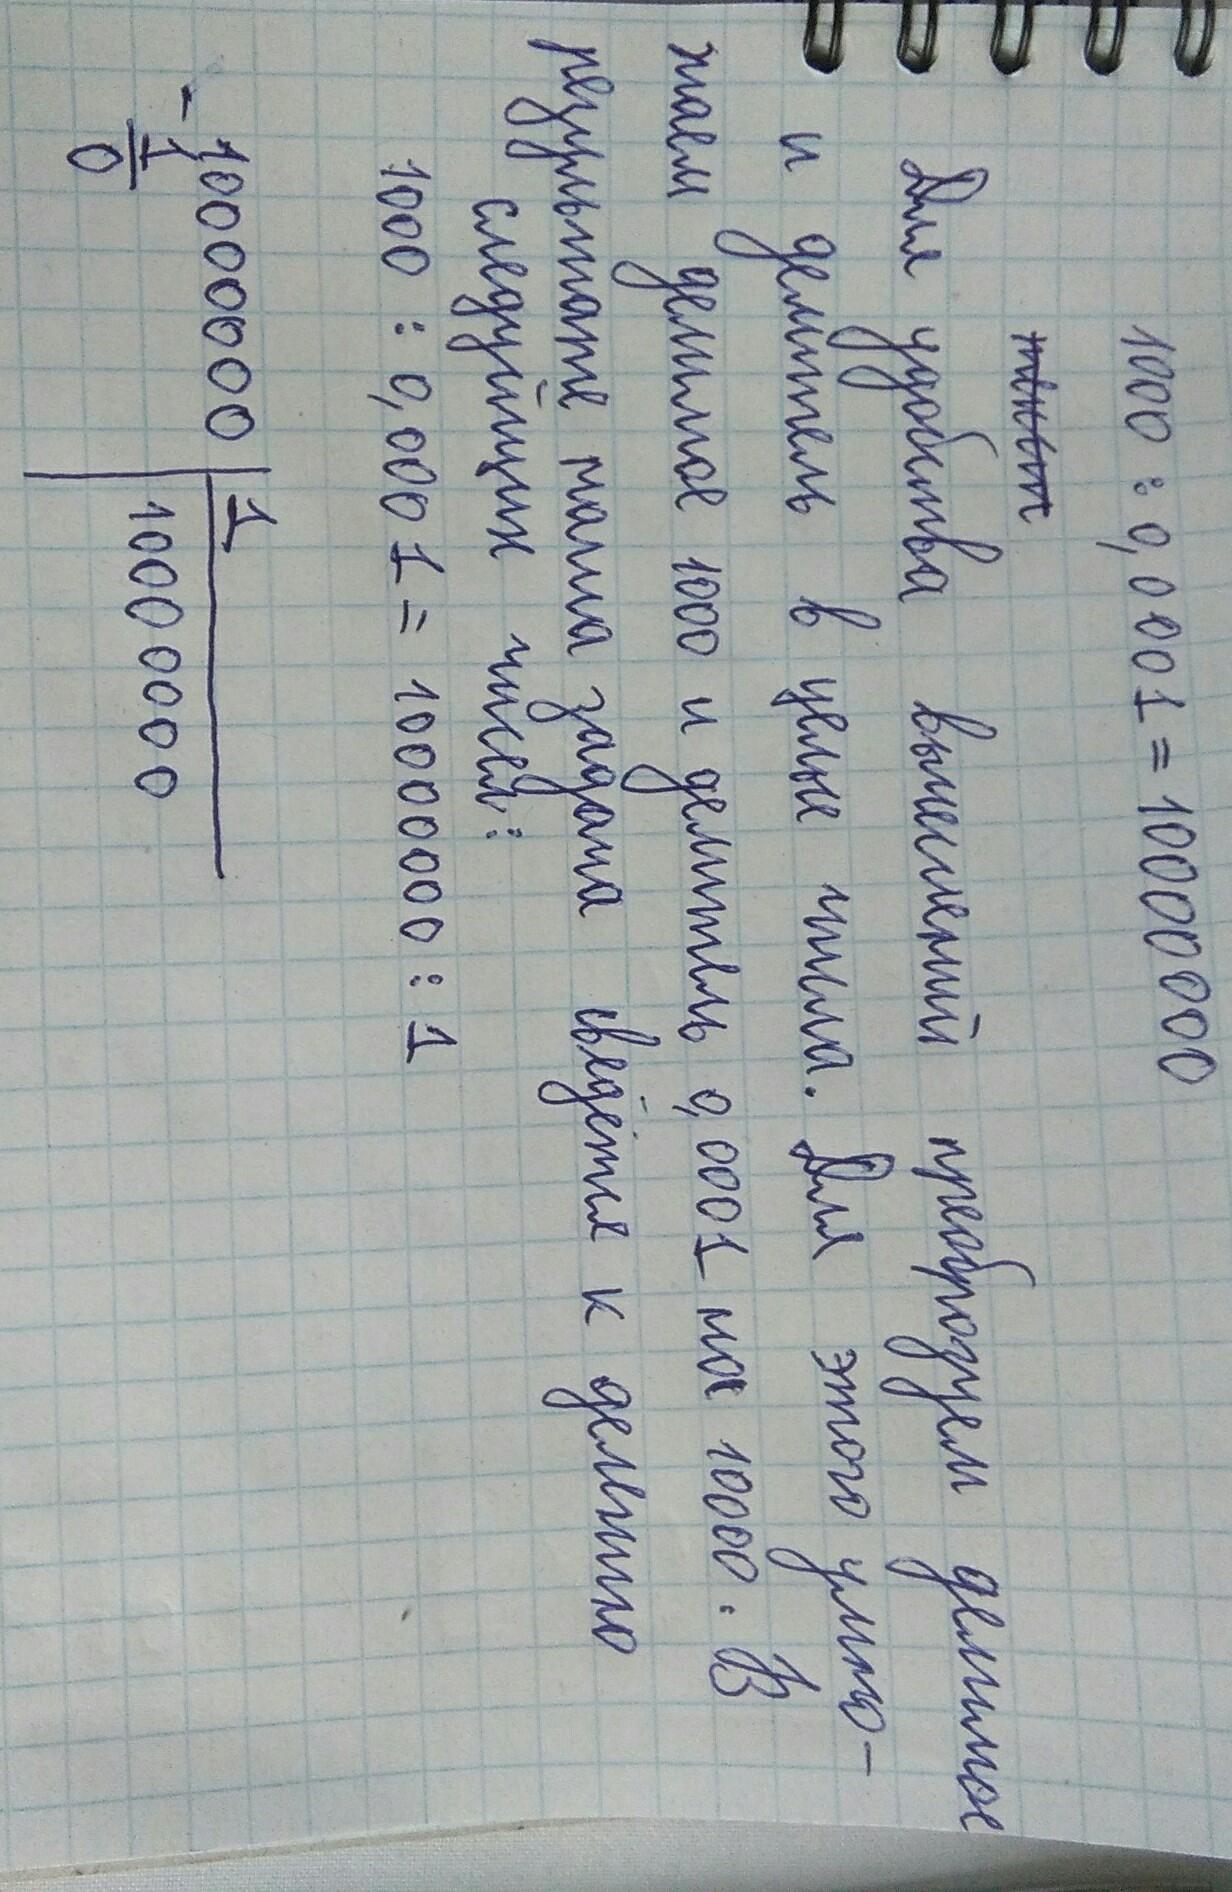 1000 : 0,0001 = 10000000
Для удобства вычислений преоброзуем делимое
и делитель в целые числа. Для этого умно-
жаем делимое 1000 и делитель 0,0001 на 10000. В
результате наша задача сведётся к делению
следуйщих чисел:
1000 : 0,0001 = 10000000 : 1
10000000 1
- 1 10000000
0